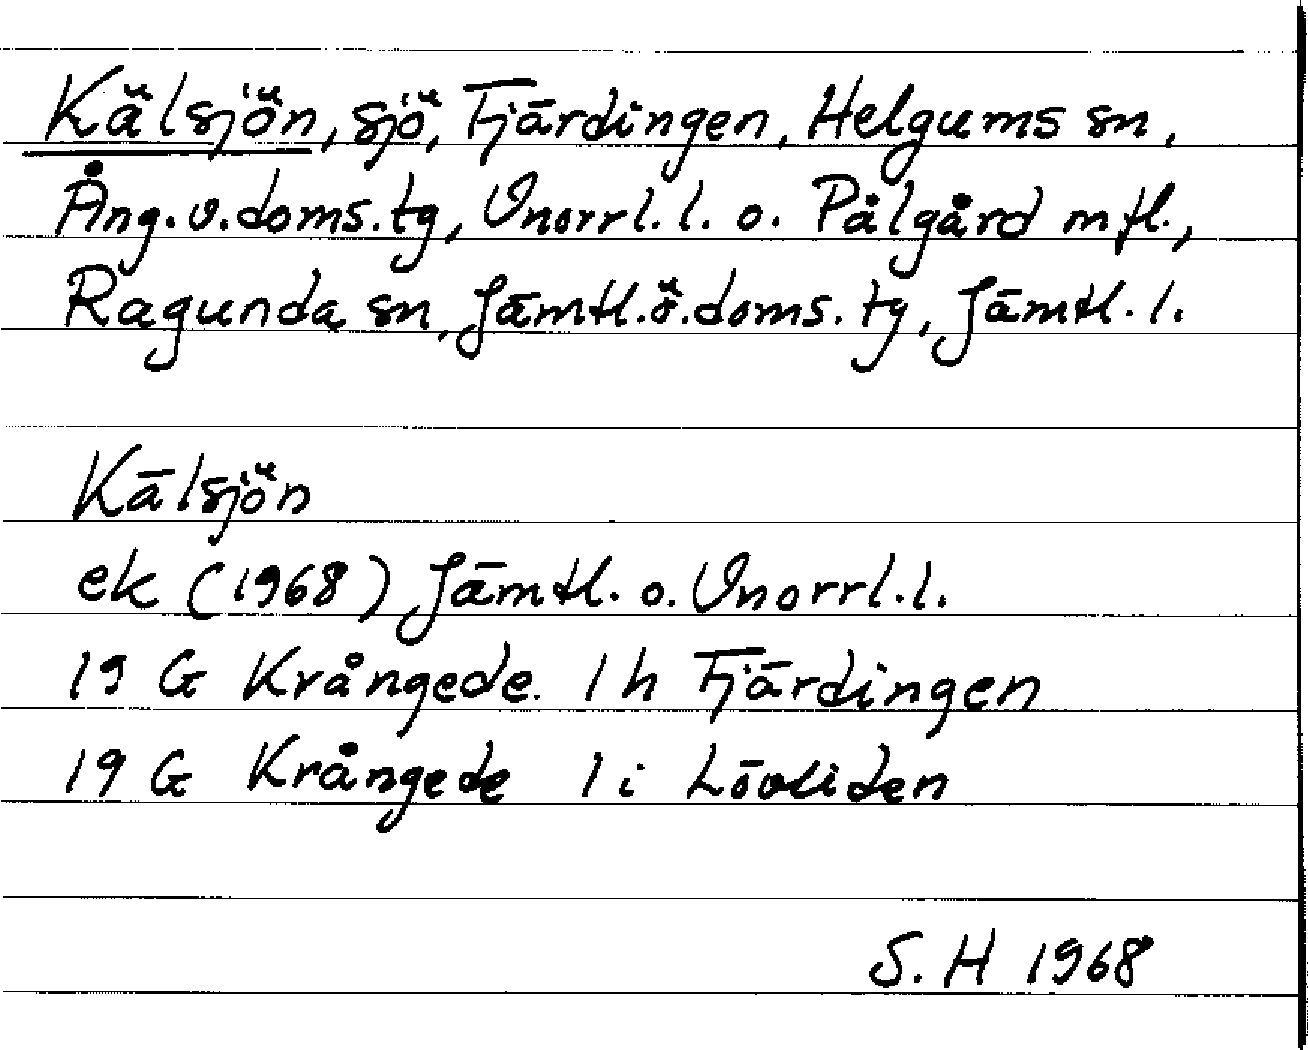 Kälsjön, sjö, Fjärdingen, Helgums sn,
Ång.v.doms.tg, Vnorrl.l. o. Pålgård mfl.,
Ragunda sn, Jämtl.ö.doms.tg, Jämtl.l.
Kälsjön
ek (1968) Jämtl. o. Vnorrl.l.
19 G Krångede 1h Fjärdingen
19 G Krångede 1i Lövliden
S.H 1968